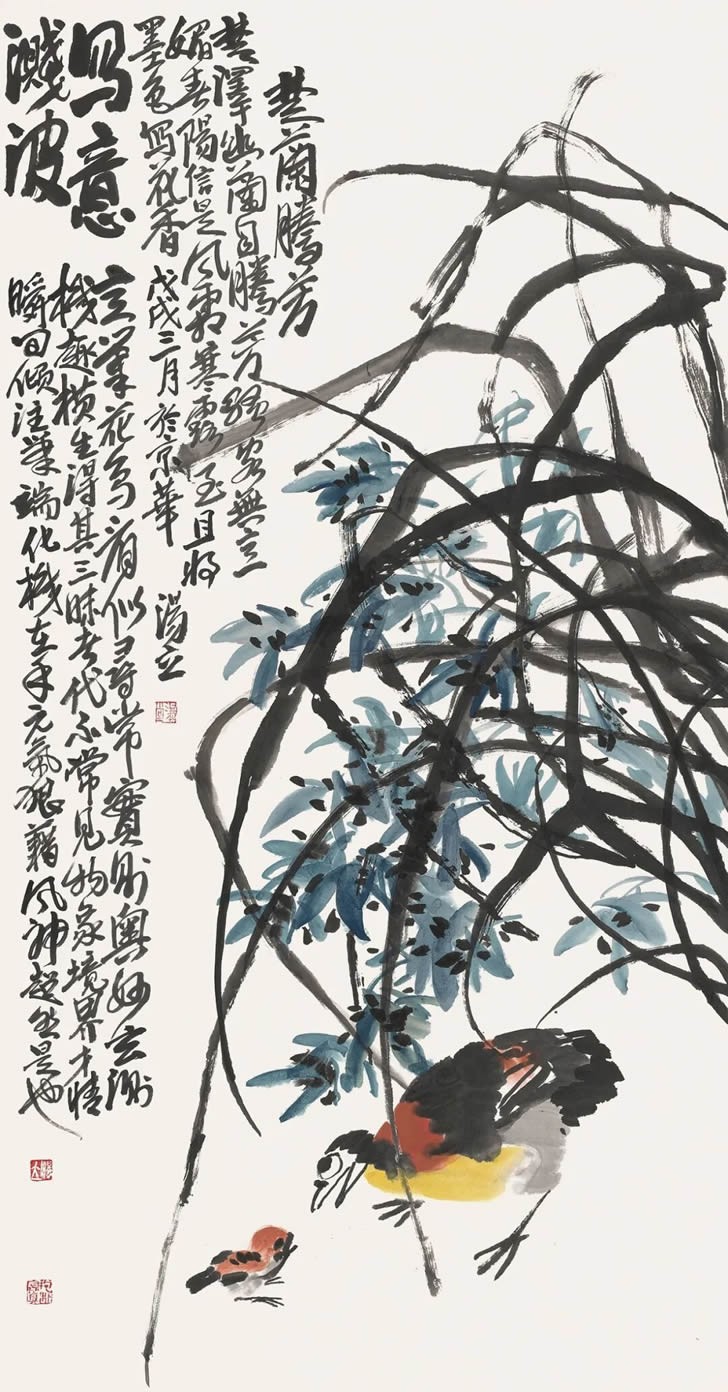 楚蘭騰芳
楚澤幽蘭自騰芳騷客無言
媚春陽信是風霜寒露至且將
墨色寫花香 戊戌三月於京華 湯立
寫意
濺波
筆花鳥看似尋常實則奧妙玄測
機趣橫生得其三昧者代不常見物象境界才情
瞬間傾注筆端化機在手元氣狼藉風神超然是也